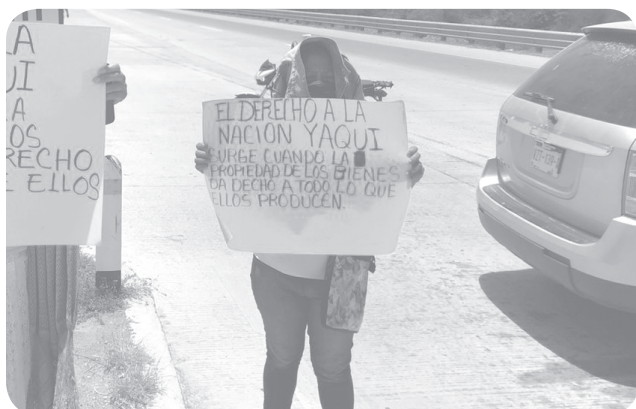 LA
UI
LA
LOS
RECHO
E ELLOS
EL DERECHO A LA
NACION YAQUI
SURGE CUANDO LA
PROPIEDAD DE LOS BIENES
DA DECHO A TODO LO QUE
ELLOS PRODUCEN.